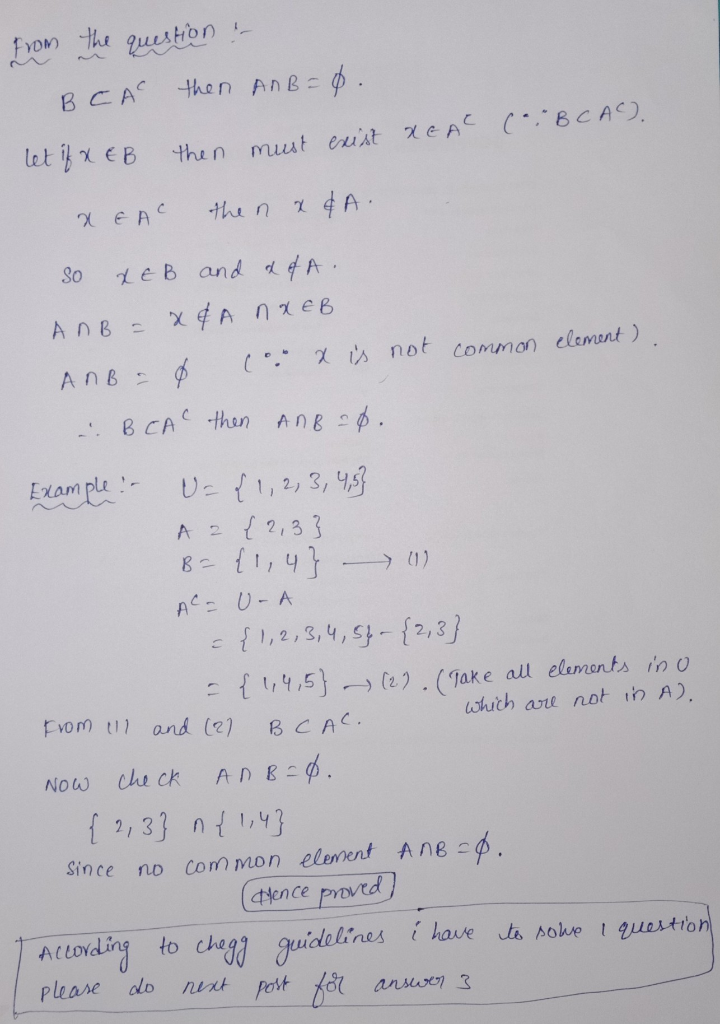 From the question :-
B ⊂ Aᶜ then A∩B = ϕ.
let if x ∈ B then must exist x ∈ Aᶜ (∵ B ⊂ Aᶜ).
x ∈ Aᶜ then x ∉ A.
So x ∈ B and x ∉ A.
A∩B = x ∉ A ∩ x ∈ B
A∩B = ϕ (∵ x is not common element).
∴ B ⊂ Aᶜ then A∩B = ϕ.
Example :- U = {1, 2, 3, 4,5}
A = {2,3}
B = {1, 4} → (1)
Aᶜ = U - A
= {1,2,3,4,5} - {2,3}
= {1,4,5} → (2). (Take all elements in U
which are not in A).
From (1) and (2) B ⊂ Aᶜ.
Now check A∩B = ϕ.
{2,3} ∩ {1,4}
Since no common element A∩B = ϕ.
Hence proved
According to chegg guidelines i have to solve 1 question
please do next post for answer 3